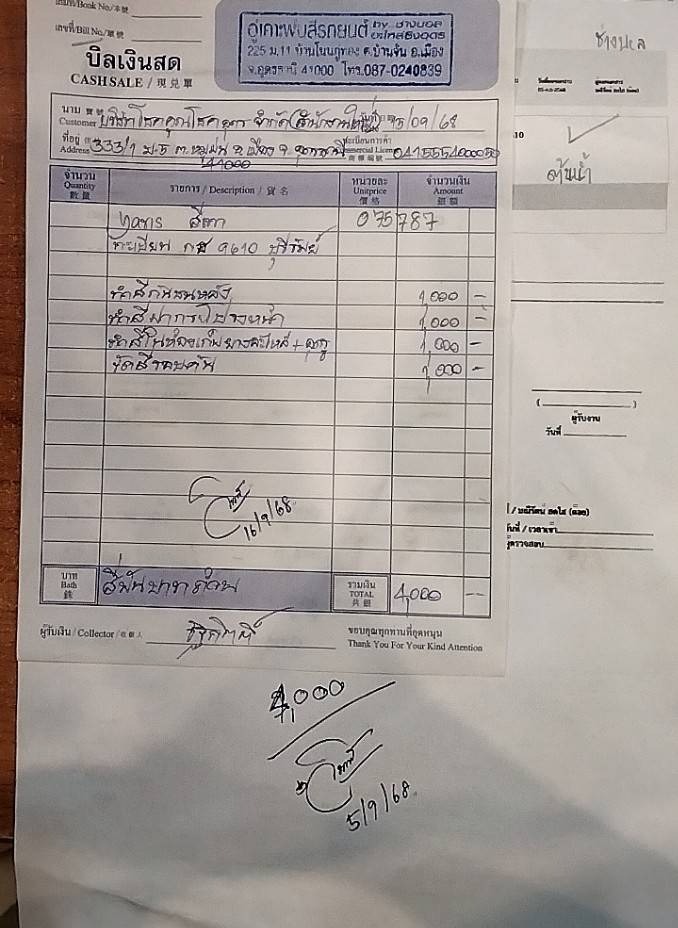 เล่มที่/Book No./本號
เลขที่/Bill No./單號
บิลเงินสด
CASH SALE / 現兑單
อู่เคาะพ่นสีรถยนต์ by ช่างบอล อะไหล่ซิ่งอุดร
225 ม.11 บ้านโนนกุทอง ต.บ้านจั่น อ.เมือง
จ.อุดรธานี 41000 โทร.087-0240839
นาม 寶號
Customer บริษัท โชคคูณโชค อุดร จำกัด (สำนักงานใหญ่) วันที่ 5/09/68
ที่อยู่
Address 333/1 ม.5 ต.หมูม่น อ.เมือง จ.อุดรธานี ทะเบียนการค้า 0415554000050
41000
จำนวน Quantity 數量
รายการ / Description / 貨名
หน่วยละ Unitprice 價格
จำนวนเงิน Amount 銀額
yaris สีเทา 075787
ทะเบียน กส 9610 บุรีรัมย์
ทำสีกันชนหลัง 1,000 -
ทำสีฝากระโปรงหน้า 1,000 -
1,000 -
ขัดสีรอบคัน 1,000 -
16/9/68
บาท Bath 銖
สี่พันบาทถ้วน
รวมเงิน TOTAL 共銀 4,000 -
ผู้รับเงิน / Collector / 收銀人
ขอบคุณทุกท่านที่อุดหนุน
Thank You For Your Kind Attention
4,000
5/9/68
10
( )
ผู้รับงาน
วันที่
วันที่ / เวลา
ผู้ตรวจสอบ